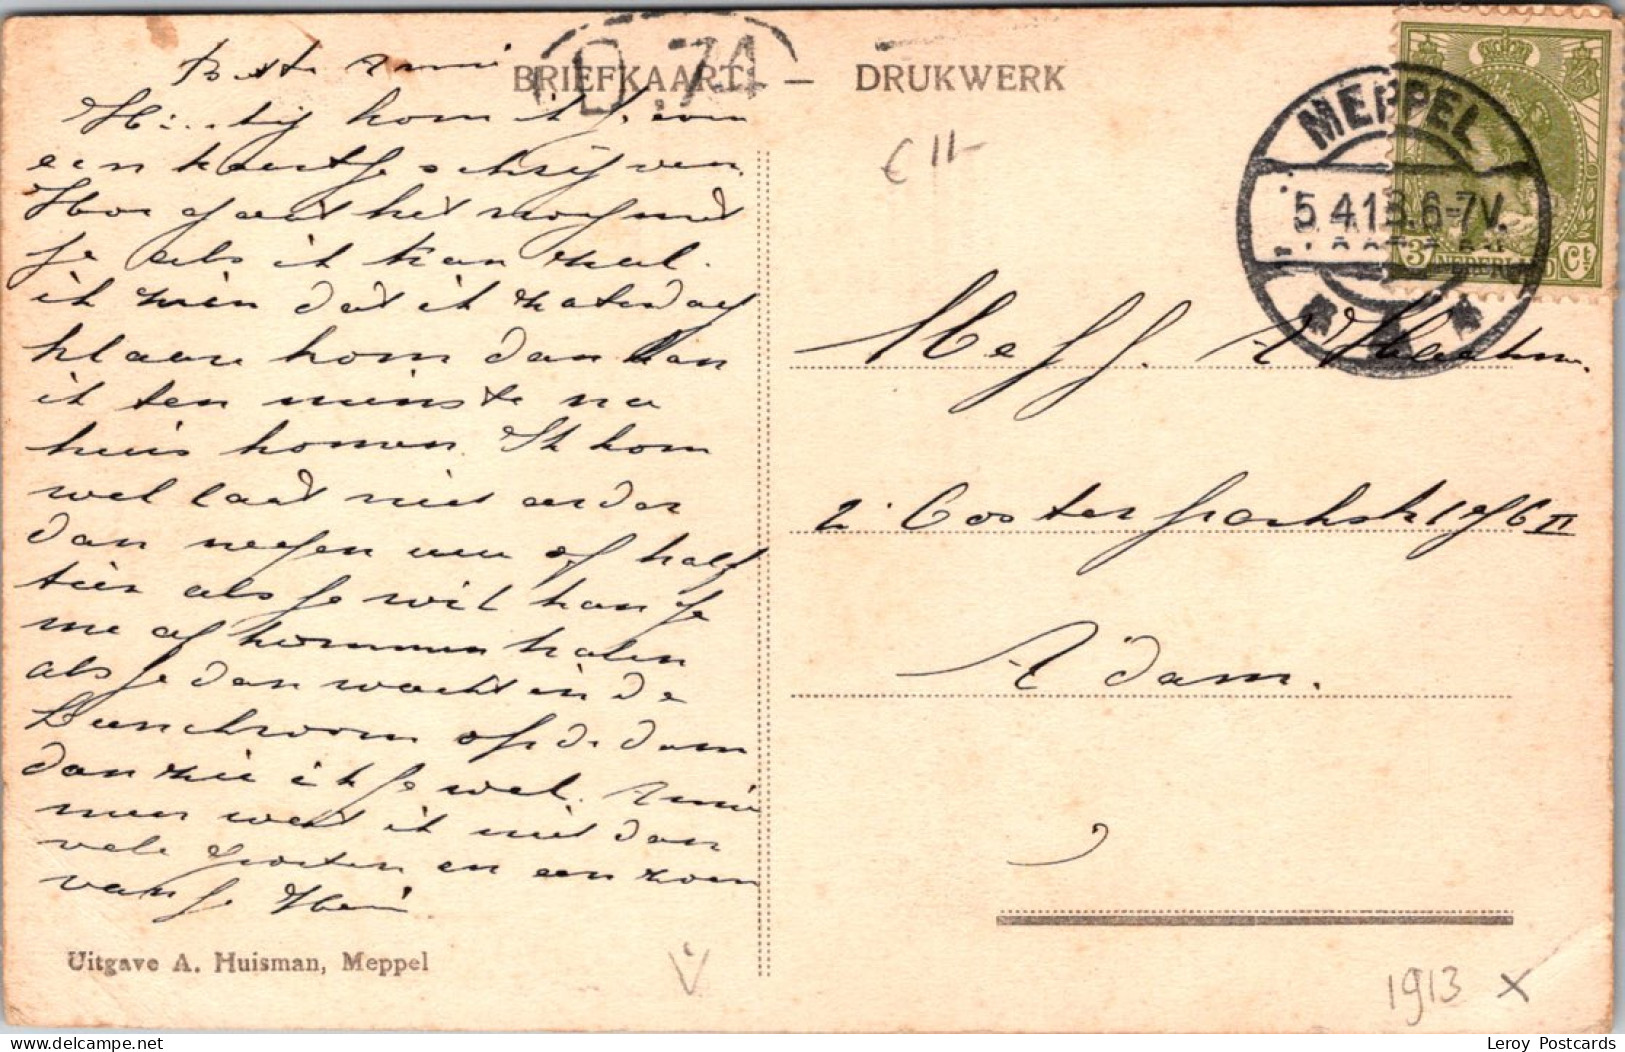 Beste Annie
Hierbij kom ik je een
een kaartje schrijven.
Hoe gaat het nog met
je als ik kan zal.
ik zien dat ik zaterdag
klaar kom dan kan
ik ten minste na
huis komen. Ik kom
wel laat niet eerder
dan negen uur of half
tien als je wil kan je
me af kommen halen
als je dan wacht in de
Lunchroom op de dam
dan zie ik je wel. Annie
meer weet ik niet dan
vele groeten en een zoen
van je Hein
Uitgave A. Huisman, Meppel
BRIEFKAART. — DRUKWERK
D.74
€ 11-
MEPPEL
5.4.13.6-7V.
3 NEDERLAND Ct
Mejj. A
2e Oosterparkstr 196 II
A'dam.
V
1913 X
delcampe.net
Leroy Postcards